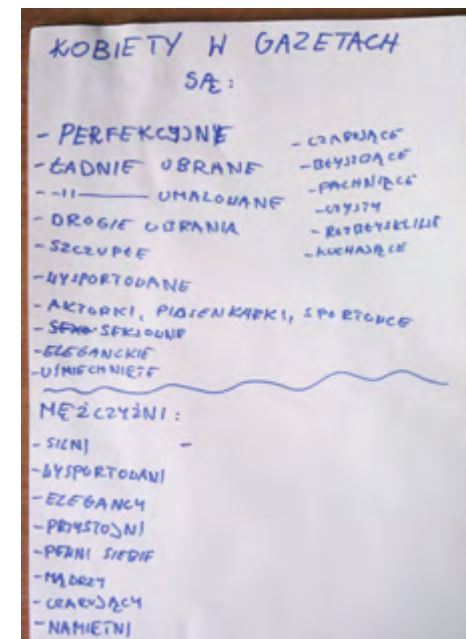 KOBIETY W GAZETACH
SĄ:
- PERFEKCYJNE
- ŁADNIE UBRANE
- -11- UMALOWANE
- DROGIE UBRANIA
- SZCZUPŁE
- WYSPORTOWANE
- AKTORKI, PIOSENKARKI, SPORTOWCE
- SEKSOWNE
- ELEGANCKIE
- UŚMIECHNIĘTE
- CZARUJĄCE
- BŁYSZCZĄCE
- PACHNĄCE
- KOCHAJĄCE
MĘŻCZYŹNI:
- SILNI -
- WYSPORTOWANI
- ELEGANCY
- PRZYSTOJNI
- PEŁNI SIEBIE
- MĄDRZY
- CZARUJĄCY
- NAMIĘTNI